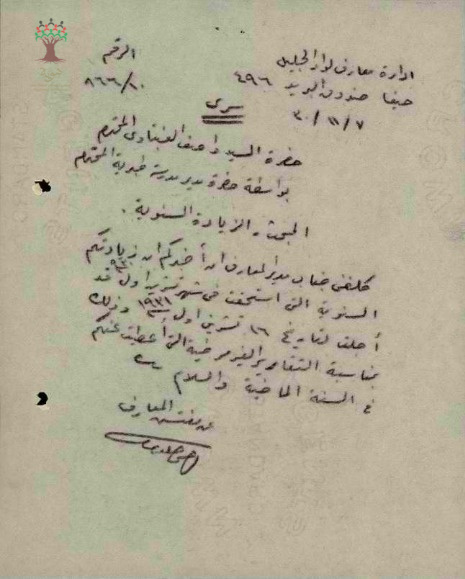 ادارة معارف لواء الجليل
حيفا صندوق البريد ٤٩٦
٣٠/١١/٧
الرقم
٨٦٦/٢٠
سري
حضرة السيد واصف المحترم
بواسطة حضرة مدير مدرسة طبرية المحترم
المبحث، الزيادة السنوية.
كلفني جناب مدير المعارف ان أخبركم ان زيادتكم
السنوية التي استحقت في شهر تشرين اول ٩٣٠ قد
أجلت لتاريخ ١٦ تشرين اول ١٩٣١ وذلك
بمناسبة التقارير الغير مرضية التي أعطيت عنكم
في السنة الماضية والسلام
عن مفتش المعارف